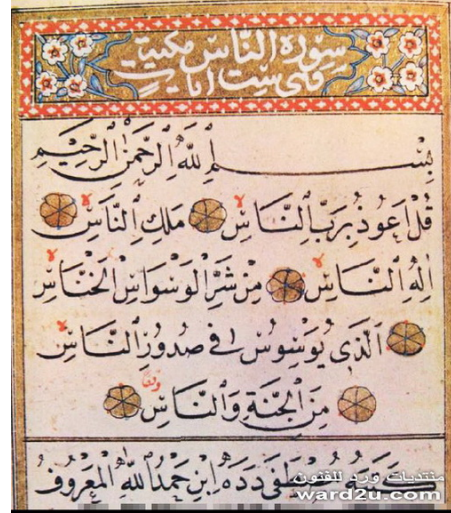 سورة الناس مكية
وهى ست ايات
بِسْمِ اللَّهِ الرَّحْمٰنِ الرَّحِيمِ
قُلْ اَعُوذُ بِرَبِّ النَّاسِ لا مَلِكِ النَّاسِ لا
اِلٰهِ النَّاسِ لا مِنْ شَرِّ الْوَسْوَاسِ الْخَنَّاسِ لا
اَلَّذِى يُوَسْوِسُ فِى صُدُورِ النَّاسِ لا
مِنَ الْجِنَّةِ وَالنَّاسِ
كَتَبَهُ مُصْطَفَى دَدَه اِبْنُ حَمْدُ اللَّهِ الْمَعْرُوفُ
منتديات ورد للفنون
ward2u.com